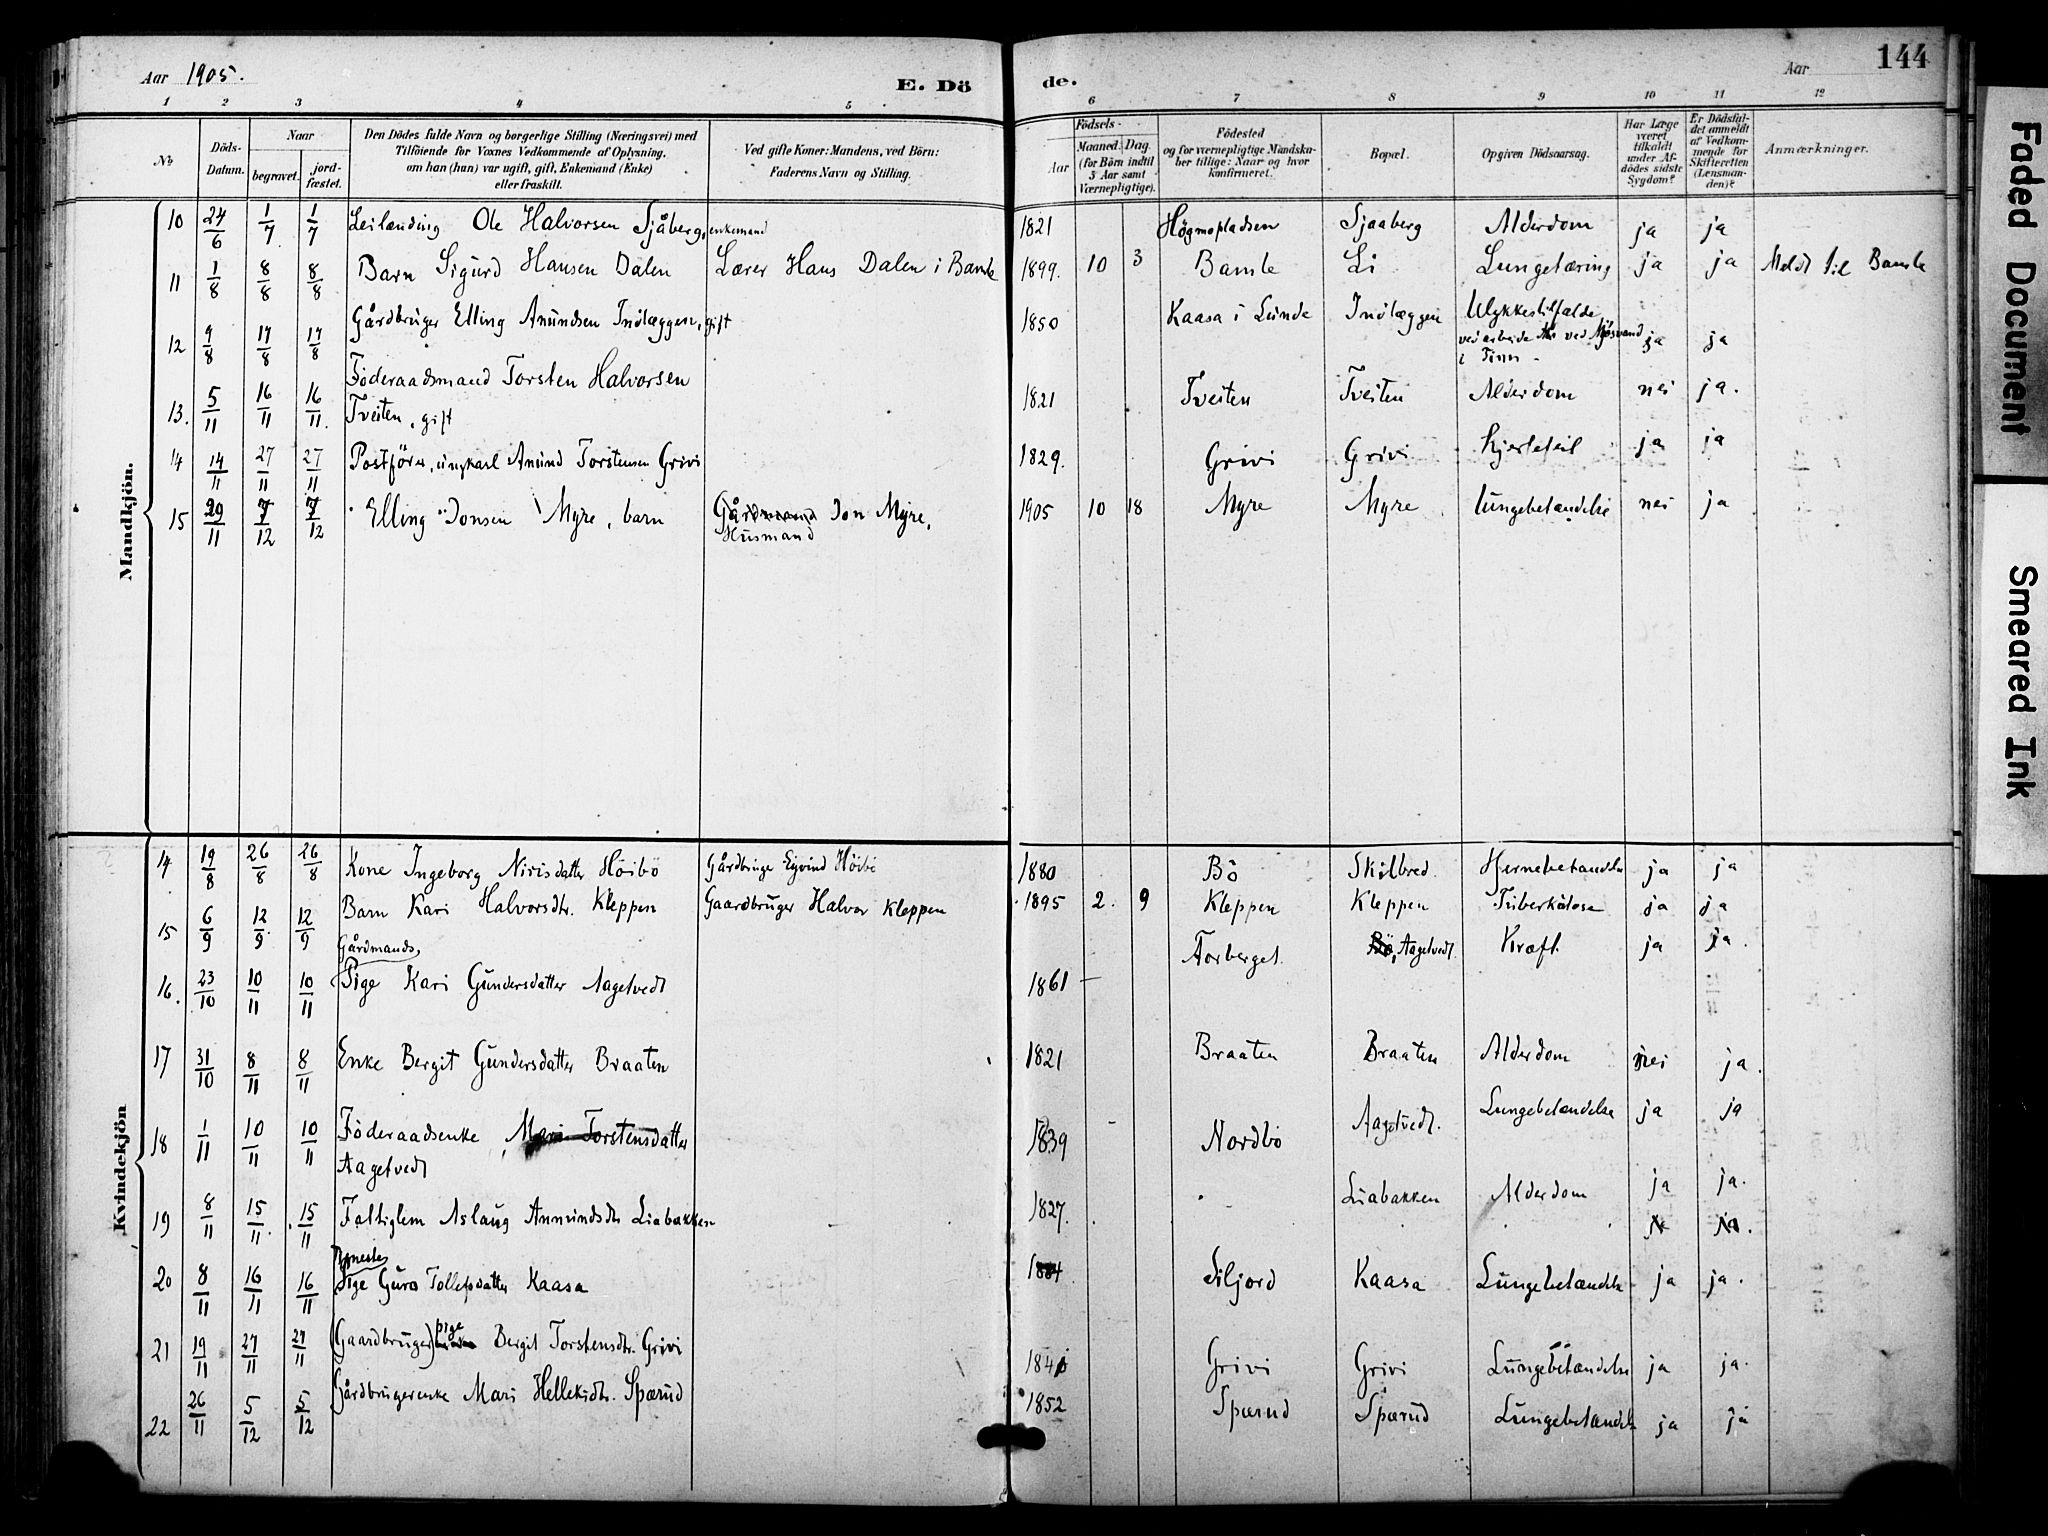 Aar 1905.
E. Döde.
Aar
144
1 2 3 4 5 6 7 8 9 10 11 12
No
Döds-Datum.
Naar
begravet.
jord-fæstet.
Den Dödes fulde Navn og borgerlige Stilling (Næringsvei) med
Tilföiende for Voxnes Vedkommende af Oplysning,
om han (hun) var ugift, gift, Enkemand (Enke)
eller fraskilt.
Ved gifte Koner: Mandens, ved Börn:
Faderens Navn og Stilling.
Födsels-
Aar
Maaned. Dag.
(for Börn indtil
3 Aar samt
Værnepligtige).
Födested
og for værnepligtige Mandska-
ber tillige: Naar og hvor
konfirmeret.
Bopæl.
Opgiven Dödsaarsag.
Har Læge
været
tilkaldt
under Af-
dödes sidste
Sygdom?
Er Dödsfal-
det anmeldt
af Vedkom-
mende for
Skifteretten
(Lensman-
den)?
Anmærkninger.
Mandkjön.
10 24/6 1/7 1/7 Leilænding Ole Halvorsen Sjåberg, enkemand 1821 Högmopladsen Sjaaberg Alderdom ja ja
11 1/8 8/8 8/8 Barn Sigurd Hansen Dalen Lærer Hans Dalen i Bamle 1899. 10 3 Bamle Li Lungetæring ja ja Meldt til Bamle
12 9/8 17/8 17/8 Gårdbruger Elling Amundsen Indlæggen, gift 1850 Kaasa i Lunde Indlæggen Ulykkestilfælde
ved arbeide ved Mjösvand
i Tinn - ja ja
13. 5/11 16/11 16/11. Föderaadsmand Torsten Halvorsen
Tveiten, gift 1821 Tveiten Tveiten Alderdom nei ja.
14 14/11 27/11 27/11 Postförer, ungkarl Amund Torstensen Grivi 1829. Grivi Grivi Hjertefeil ja ja
15 29/11 7/12 7/12 Elling Jonsen Myre, barn Gårdmand Jon Myre,
Husmand 1905 10 18 Myre Myre lungebetændelse nei ja
Kvindekjön
14 19/8 26/8 26/8 Kone Ingeborg Nirisdatter Höibö Gårdbruge Eyvind Höibö 1880 Bö Skilbred. Hjernebetændelse ja ja
15 6/9 12/9 12/9 Barn Kari Halvorsdtr. Kleppen Gaardbruger Halvor Kleppen 1895 2. 9 Kleppen Kleppen Tuberkulose ja ja
16. 23/10 10/11 10/11 Gårdmands
Pige Kari Gundersdatter Aagetvedt 1861 - Torberget. Bö, Aagetvedt. Kræft ja ja.
17 31/10 8/11 8/11 Enke Bergit Gundersdatter Braaten 1821 Braaten Braaten Alderdom nei ja.
18 1/11 10/11 10/11 Föderaadsenke, Mari Torstensdatter
Aagetvedt 1839 Nordbö Aagetvedt. Lungebetændelse ja ja
19 8/11 15/11. 15/11 Fattiglem Aslaug Ammundsdtr Liabakken 1827. Liabakken Alderdom ja ja.
20 8/11 16/11 16/11 Tjeneste
Pige Guro Tollefsdatter Kaasa Siljord Kaasa Lungebetændelse ja ja.
21 19/11 27/11 27/11 (Gaardbruger) pige Bergit Torstensdtr. Grivi Grivi Grivi Lungebetændelse ja ja.
22 26/11 5/12 5/12 Gårdbrugerenke Mari Hellekidtr. Sparud 1852 Sparud Sparud Lungebetændelse ja ja
Faded Document
Smeared Ink